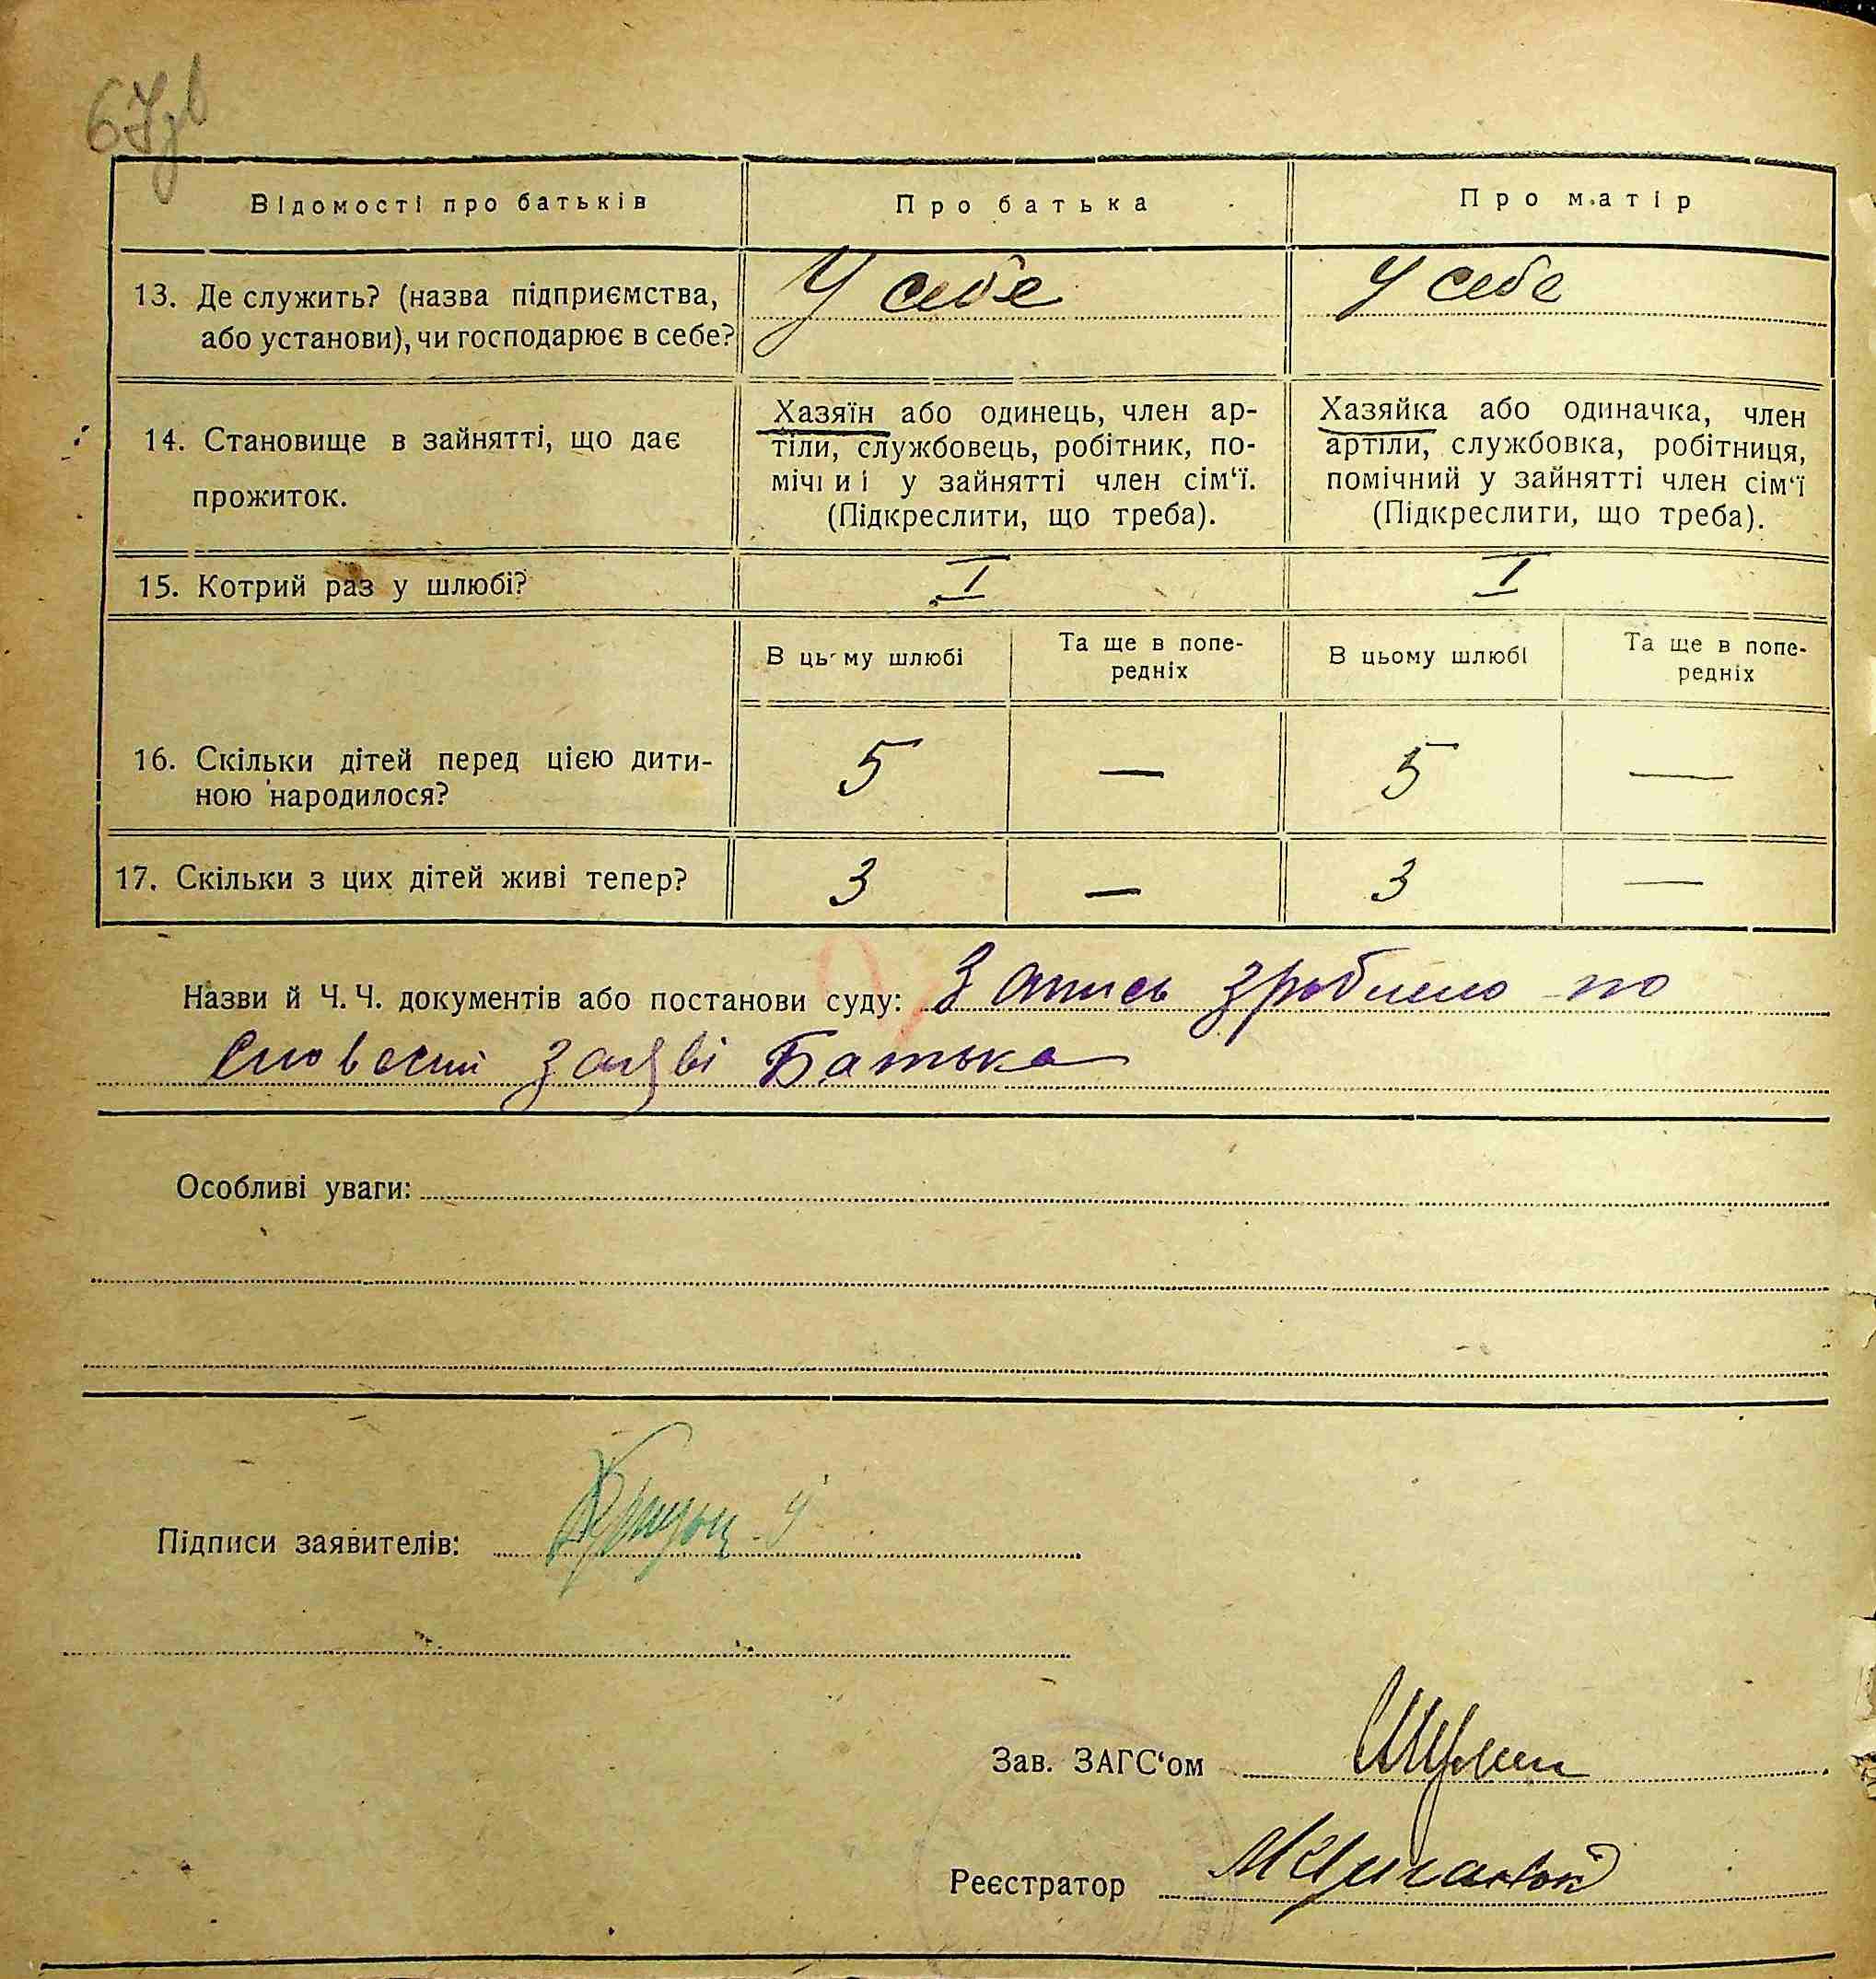 67зв
Відомості про батьків
Про батька
Про матір
13. Де служить? (назва підприємства,
або установи), чи господарює в себе?
У себе
У себе
14. Становище в зайнятті, що дає
прожиток.
Хазяїн або одинець, член ар-
тіли, службовець, робітник, по-
мічниі у зайнятті член сім‘ї.
(Підкреслити, що треба).
Хазяйка або одиначка, член
артіли, службовка, робітниця,
помічний у зайнятті член сім‘ї
(Підкреслити, що треба).
15. Котрий раз у шлюбі?
I
I
В цьому шлюбі
Та ще в попе-
редніх
В цьому шлюбі
Та ще в попе-
редніх
16. Скільки дітей перед цією дити-
ною народилося?
5 — 5 —
17. Скільки з цих дітей живі тепер?
3 — 3 —
Назви й Ч. Ч. документів або постанови суду: Запись зроблено по
словесній заяві Батька
Особливі уваги:
Підписи заявителів:
Зав. ЗАГС‘ом
Реєстратор